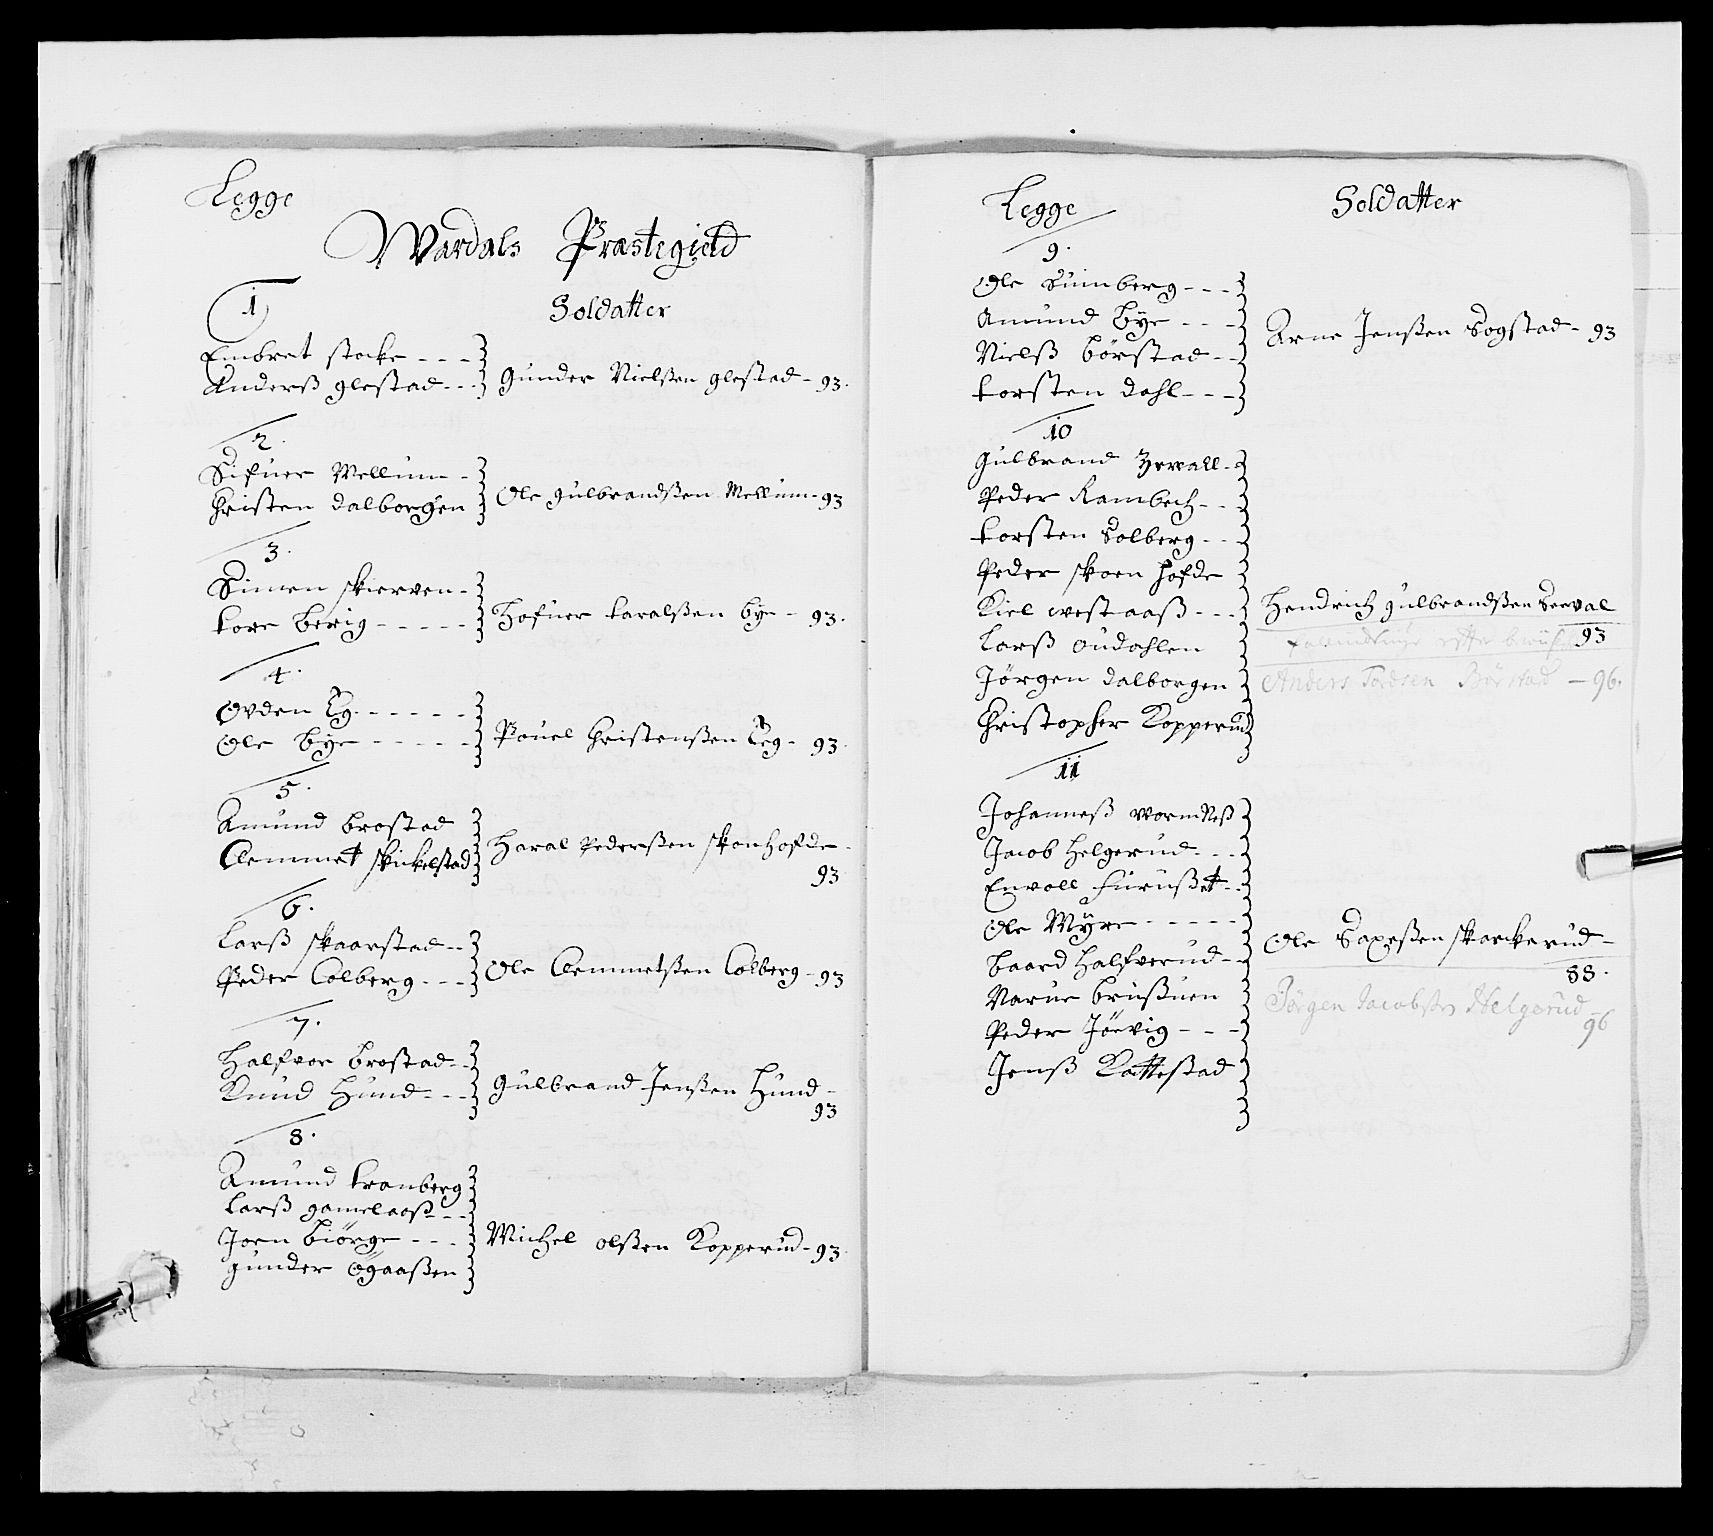 Legge
Wardals Præstegield
1
Soldatter
Embret stocke
Anderß glestad
Gunder Nielßen glestad - 93.
2.
Sifuer Mellum
Christen dalborgen
Ole gulbrandßen Mellum - 93
3.
Simen skierven
tore berig
Hofuer taralßen bye - 93.
4.
Ovden Eg
Ole bye
Pouel Christenßen Eeg - 93.
5.
Amund brostad
Clemmet skickelstad
Haral Pederßen skonhofde
93
6.
Larß skaarstad
Peder Colberg
Ole Clemmetßen Colberg - 93
7.
Halfvor brostad
Knud Hund
Gulbrand Jenßen Hund
93
8.
Amund tranberg
Larß gamelaaß
Joen biörge
gunder Ögaaßen
Michel olßen Kopperud - 93.
Legge
Soldatter
9.
Ole Suinberg
Amund bye
Nielß börstad
torsten dahl
Arne Jenßen Sogstad - 93
10
Gulbrand
Peder Rambech
torsten Solberg
Peder skoen hofde
Kiel westaaß
Larß oudahlen
Jörgen dalborgen
Christopher Kopperud
Hendrich gulbrandßen Seeval
93
Anders Tordsen Börstad - 96.
11
Johanneß wormNeß
Jacob helgerud
Envoll furußet
Ole Myre
baard halfverud
Narue brußuen
Peder Jöevig
Jenß Kattestad
Ole Saxeßen skarckerud
88.
Jörgen Jacobsen Helgerud
96